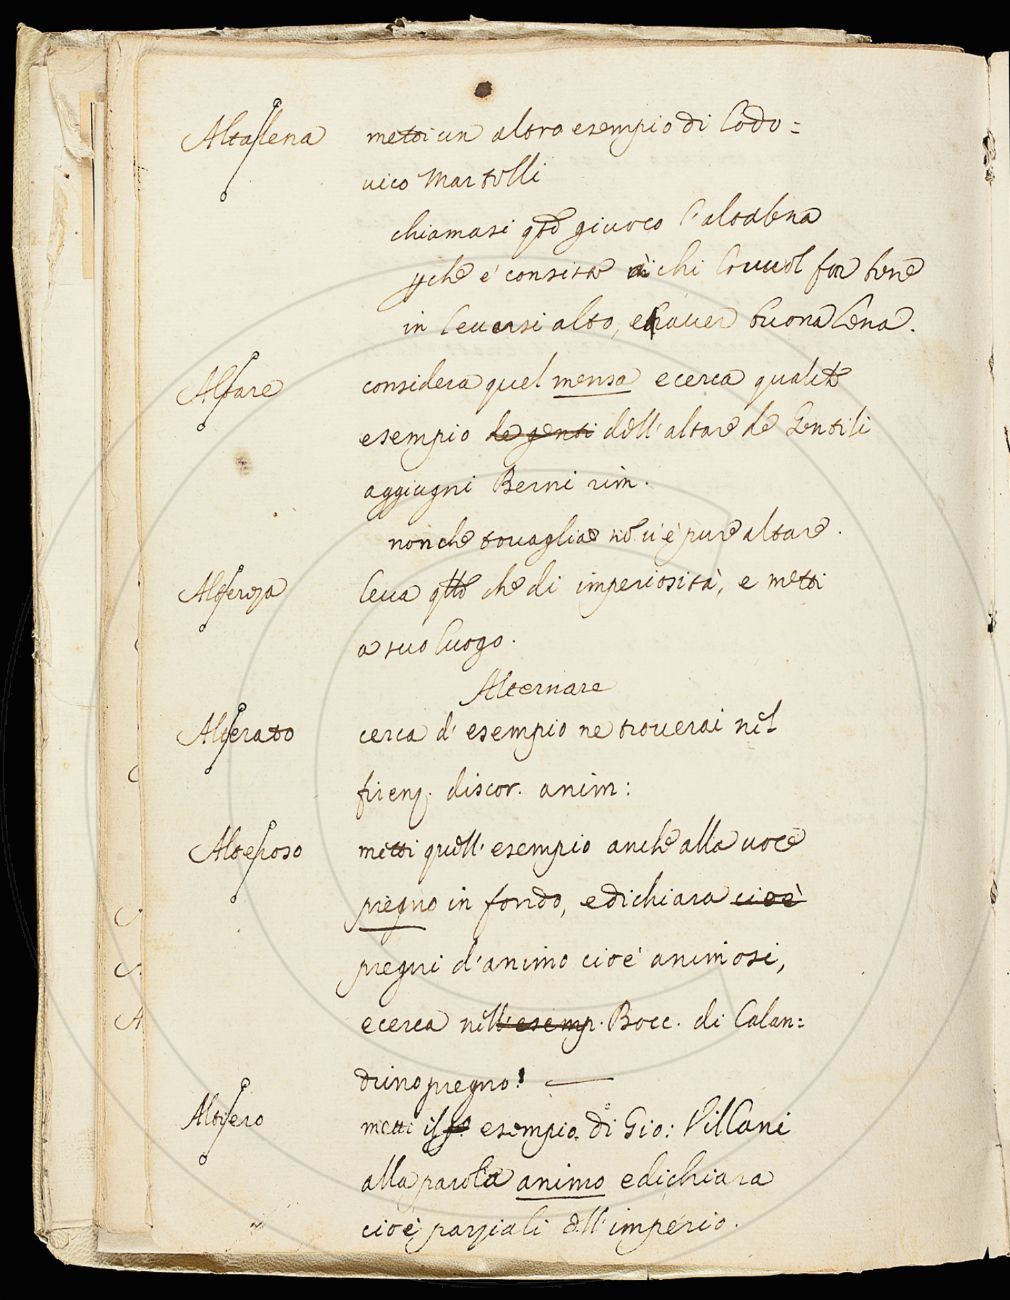 Altalena metti un altro esempio di Lodo=
vico Martelli
chiamasi qto giuoco l'altalena
pche è consiste a chi lo vuol far bene
in levarsi alto, e haver buona lena.
Altare considera quel mensa e cerca qualche
esempio de genti dell'altare de Gentili
aggiugni Berni rim.
non che tovaglia nō v'è pure altare.
Alterezza leva qtto che di imperiosità, e metti
a suo luogo.
Alternare
Alterato cerca d'esempio ne troverai nel
firenz. discor. anim:
Alteroso metti quell'esempio anche alla voce
pregno in fondo, e dichiara cioè
pregni d'animo cioè animosi,
e cerca nell'esemp. Bocc. di Calan=
drino pregno!
Altiero metti il esempio di Gio: Villani
alla parola animo e dichiara
cioè parziali dell'imperio.